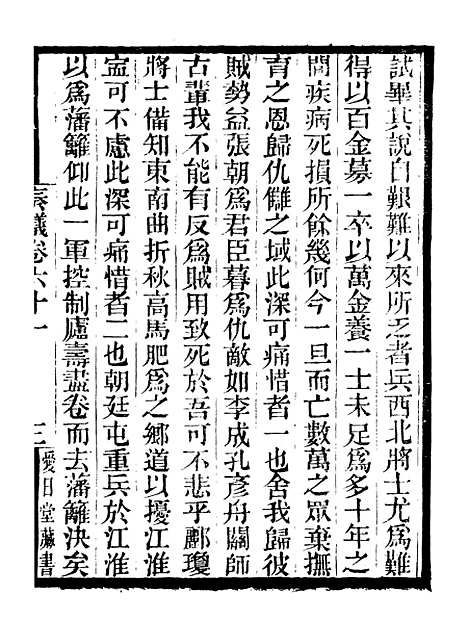 試畢其說自艱難以來所乏者兵西北將士尤爲難
得以百金募一卒以萬金養一士未足爲多十年之
間疾病死損所餘幾何今一旦而亡數萬之眾棄撫
育之恩歸仇讎之域此深可痛惜者一也舍我歸彼
賊勢益張朝爲君臣暮爲仇敵如李成孔彥舟關師
古輩我不能有反爲賊用致死於吾可不悲乎酈瓊
將士備知東南曲折秋高馬肥爲之鄉道以擾江淮
寍可不慮此深可痛惜者二也朝廷屯重兵於江淮
以爲藩籬仰此一軍控制廬壽盡卷而去藩籬決矣
奏議卷六十一
三
愛日堂藏書